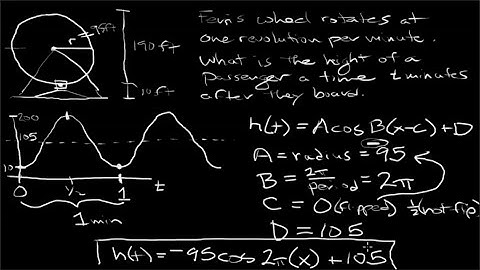 Ferris wheel rotates at
one revolution per minute.
What is the hight of a
passenger a time t minutes
after they board.
r
95ft
190 ft
10 ft
h(t) = A cos B(x-c) + D
A = radius = 95
B = 2π/period = 2π
C = 0 (flipped) ½ (not flip)
D = 105
h(t) = -95 cos 2π(x) + 105
200
105
10
0 ½ 1 t
1 min